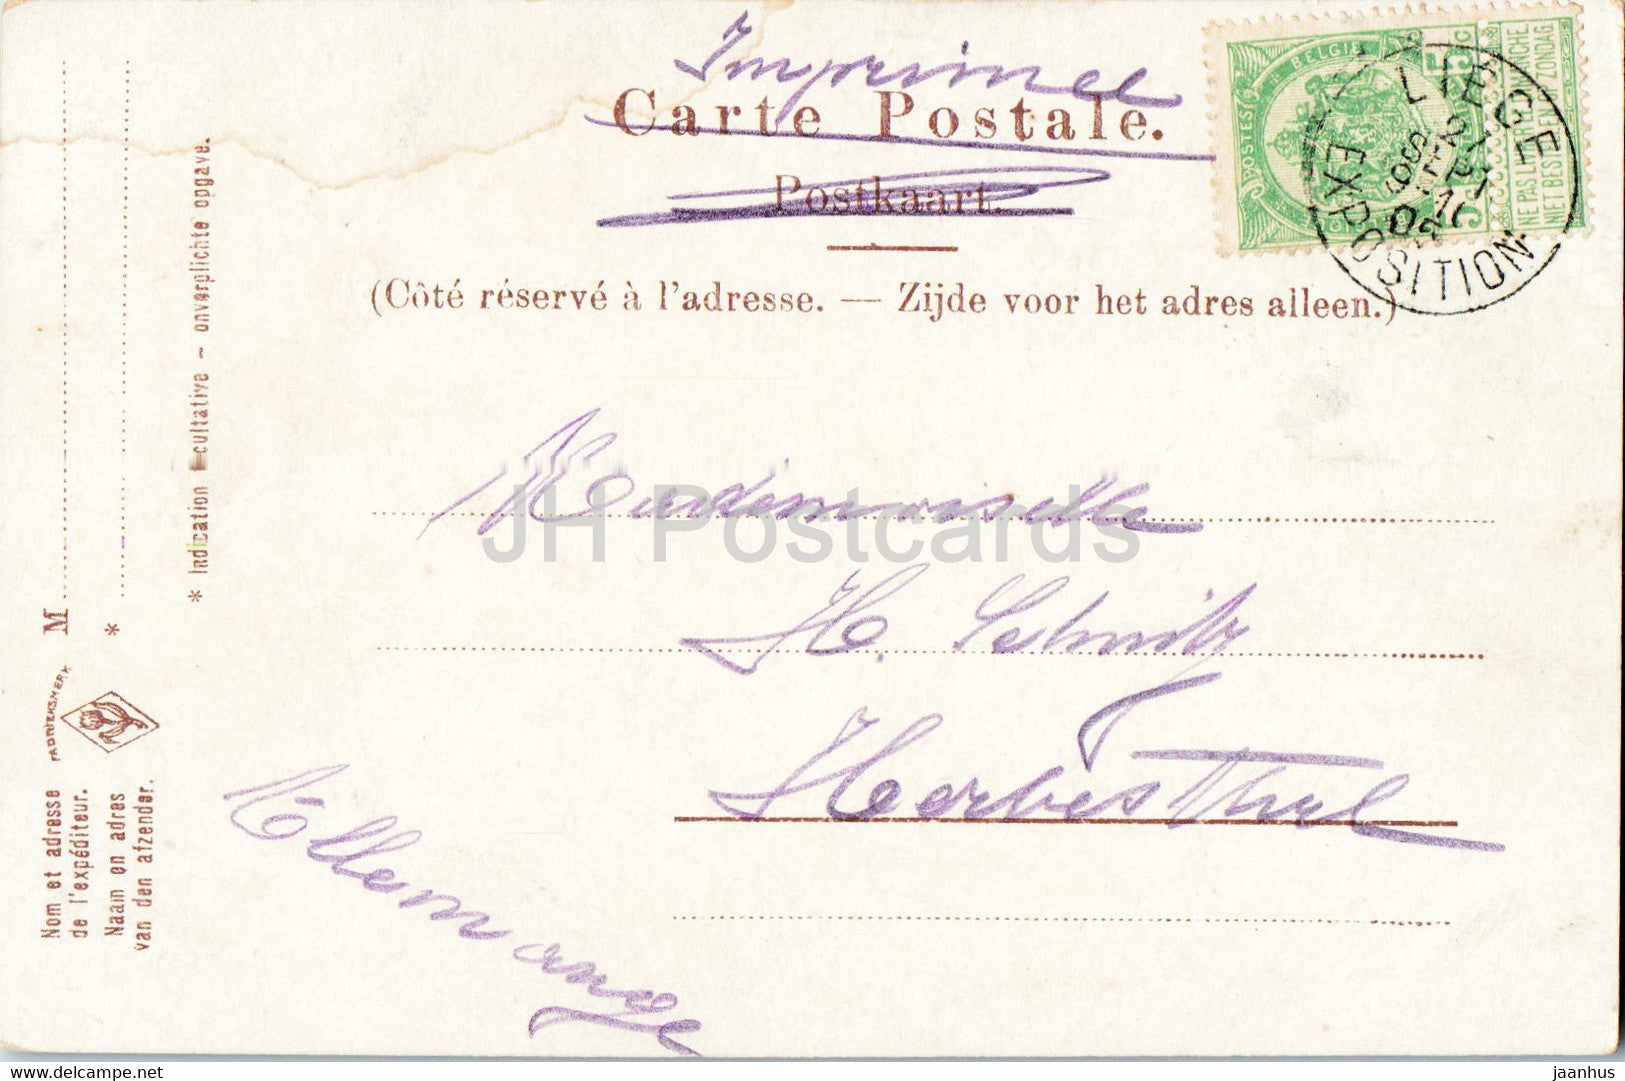 Imprimee
Carte Postale.
Postkaart.
(Côté réservé à l'adresse. — Zijde voor het adres alleen.)
POSTES BELGIE
NE PAS LIVRER LE DIMANCHE
NIET BESTELLEN OP ZONDAG
LIEGE
EXPOSITION
Mademoiselle
H. Schmitz
Herbesthal
Allemange
M
*
* Indication facultative - onverplichte opgave.
FABRIEKSMERK
Nom et adresse
de l'expéditeur.
Naam en adres
van den afzender.
JH Postcards
www.delcampe.net
jaanhus